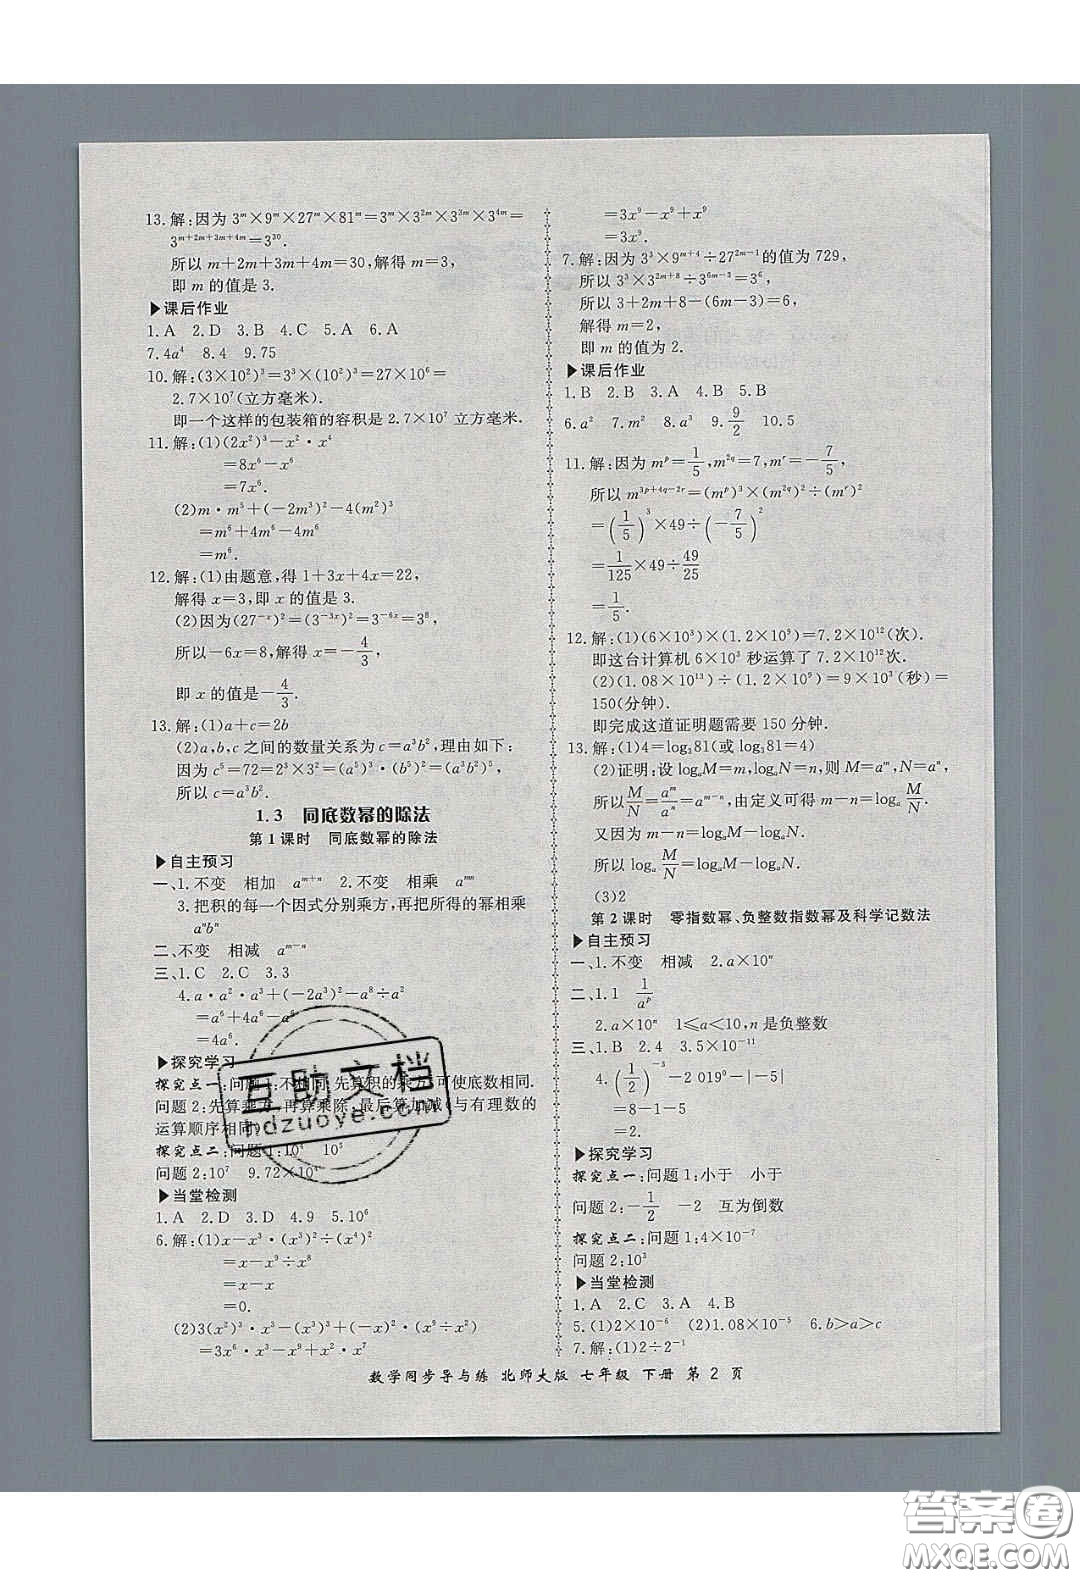 13.解:因为 3^m×9^m×27^m×81^m=3^m×3^{2m}×3^{3m}×3^{4m}=
3^{m+2m+3m+4m}=3^{30}.
所以 m+2m+3m+4m=30,解得 m=3,
即 m 的值是 3.
▶课后作业
1.A 2.D 3.B 4.C 5.A 6.A
7.4a^4 8.4 9.75
10.解:(3×10^2)^3=3^3×(10^2)^3=27×10^6=
2.7×10^7(立方毫米).
即一个这样的包装箱的容积是 2.7×10^7 立方毫米.
11.解:(1)(2x^2)^3-x^2·x^4
=8x^6-x^6
=7x^6.
(2)m·m^5+(-2m^3)^2-4(m^2)^3
=m^6+4m^6-4m^6
=m^6.
12.解:(1)由题意,得 1+3x+4x=22,
解得 x=3,即 x 的值是 3.
(2)因为(27^{-x})^2=(3^{-3x})^2=3^{-6x}=3^8
所以-6x=8,解得 x=-4/3,
即 x 的值是-4/3.
13.解:(1)a+c=2b
(2)a,b,c 之间的数量关系为 c=a^3b^2,理由如下:
因为 c^5=72=2^3×3^2=(a^5)^3·(b^5)^2=(a^3b^2)^5,
所以 c=a^3b^2.
1.3 同底数幂的除法
第1课时 同底数幂的除法
▶自主预习
一、1.不变 相加 a^{m+n} 2.不变 相乘 a^{mn}
3.把积的每一个因式分别乘方,再把所得的幂相乘
a^nb^n
二、不变 相减 a^{m-n}
三、1.C 2.C 3.3
4.a·a^2·a^3+(-2a^3)^2-a^8÷a^2
=a^6+4a^6-a^6
=4a^6.
▶探究学习
探究点一:问题1:不相同 先算积的乘方 可使底数相同.
问题2:先算乘方,再算乘除,最后算加减 与有理数的
运算顺序相同
探究点二:问题1:10^4 10^5
问题2:10^7 9.72×10^4
▶当堂检测
1.A 2.D 3.D 4.9 5.10^6
6.解:(1)x-x^3·(x^3)^2÷(x^4)^2
=x-x^9÷x^8
=x-x
=0.
(2)3(x^2)^3·x^3-(x^3)^3+(-x)^2·x^9÷x^2
=3x^6·x^3-x^9+x^2·x^7
=3x^9-x^9+x^9
=3x^9.
7.解:因为 3^3×9^{m+4}÷27^{2m-1}的值为 729,
所以 3^3×3^{2m+8}÷3^{6m-3}=3^6,
所以 3+2m+8-(6m-3)=6,
解得 m=2,
即 m 的值为 2.
▶课后作业
1.B 2.B 3.A 4.B 5.B
6.a^2 7.m^2 8.a^3 9.9/2 10.5
11.解:因为 m^p=1/5,m^{2q}=7,m^r=-7/5,
所以 m^{3p+4q-2r}=(m^p)^3×(m^{2q})^2÷(m^r)^2
=(1/5)^3×49÷(-7/5)^2
=1/125×49÷49/25
=1/5.
12.解:(1)(6×10^3)×(1.2×10^9)=7.2×10^{12}(次).
即这台计算机 6×10^3 秒运算了 7.2×10^{12}次.
(2)(1.08×10^{13})÷(1.2×10^9)=9×10^3(秒)=
150(分钟).
即完成这道证明题需要 150 分钟.
13.解:(1)4=log_3 81(或 log_3 81=4)
(2)证明:设 log_aM=m,log_aN=n,则 M=a^m,N=a^n,
所以M/N=a^m/a^n=a^{m-n},由定义可得 m-n=log_a M/N
又因为 m-n=log_aM-log_aN,
所以 log_a M/N=log_aM-log_aN.
(3)2
第2课时 零指数幂、负整数指数幂及科学记数法
▶自主预习
一、1.不变 相减 2.a×10^n
二、1.1 1/a^p
2.a×10^n 1≤a<10,n 是负整数
三、1.B 2.4 3.5×10^{-11}
4.(1/2)^{-3}-2 019^0-|-5|
=8-1-5
=2.
▶探究学习
探究点一:问题1:小于 小于
问题2:-1/2 -2 互为倒数
探究点二:问题1:4×10^{-7}
问题2:10^3
▶当堂检测
1.A 2.C 3.A 4.B
5.(1)2×10^{-6} (2)1.08×10^{-5} 6.b>a>c
7.解:(1)2÷2^{-1}
数学同步导与练 北师大版 七年级 下册 第2页
互助文档
hdzuoye.com
答案圈
MXQE.COM